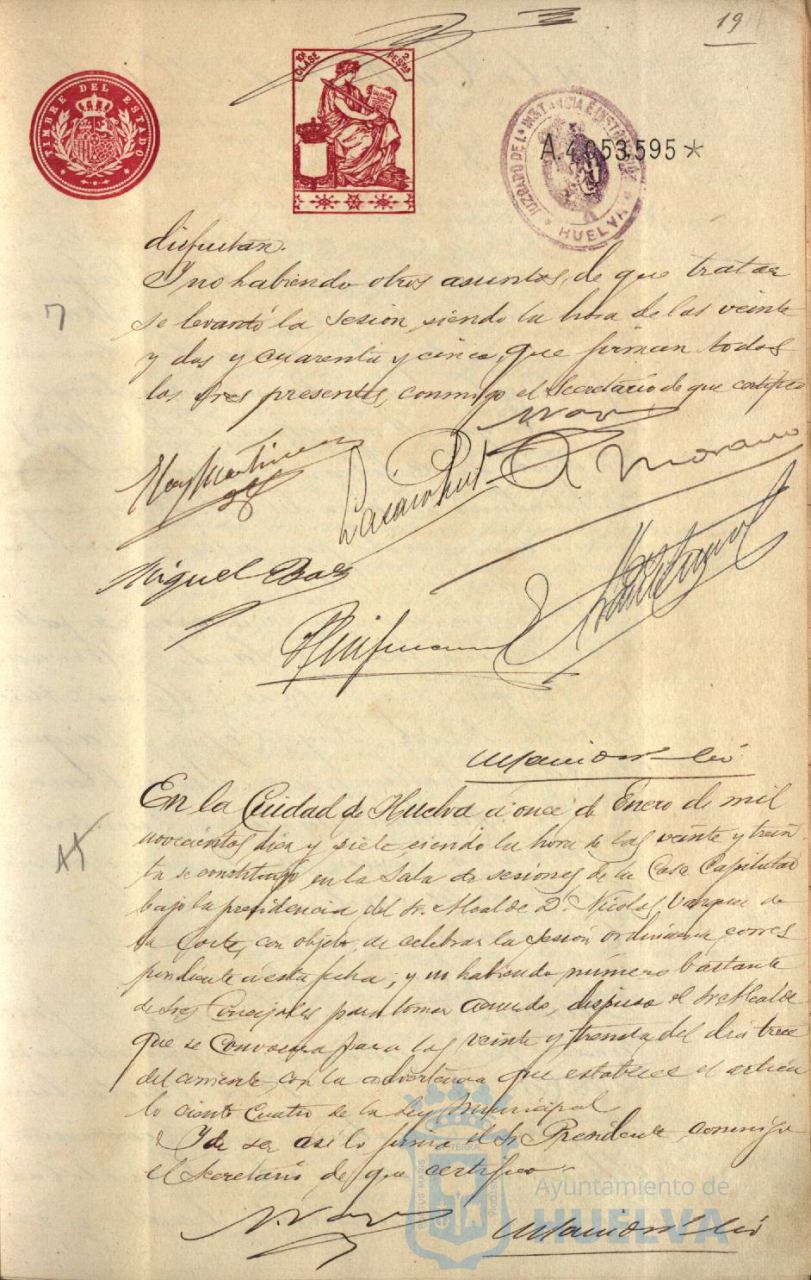 19
TIMBRE DEL ESTADO
10ª CLASE
2 PESETAS
JUZGADO DE 1ª INSTANCIA E INSTRUCCION
HUELVA
A.4.053.595*
disfrutan.
Y no habiendo otros asuntos, de que tratar
se levantó la sesion, siendo la hora de las veinte
y dos y cuarenta y cinco, que firman todos
los Sres presentes, conmigo el Secretario de que certifico
7
A. Moreno
Miguel Baez
En la Ciudad de Huelva a once de Enero de mil
novecientos diez y siete, siendo la hora de las veinte y trein
ta se constituyó en la Sala de sesiones de la Casa Capitular
bajo la presidencia del Sr. Alcalde D. Nicolas Vazquez de
la Corte, con objeto de celebrar la sesión ordinaria corres
pondiente a esta fecha; y no habiendo número bastante
de Sres Concejales para tomar acuerdo, dispuso el Sr Alcalde
que se convocara para las veinte y treinta del dia trece
del corriente, con la advertencia que establece el articu
lo ciento cuatro de la Ley Municipal
Y de ser asi lo firma el Sr Presidente, conmigo
el Secretario de que certifico.
Ayuntamiento de
HUELVA